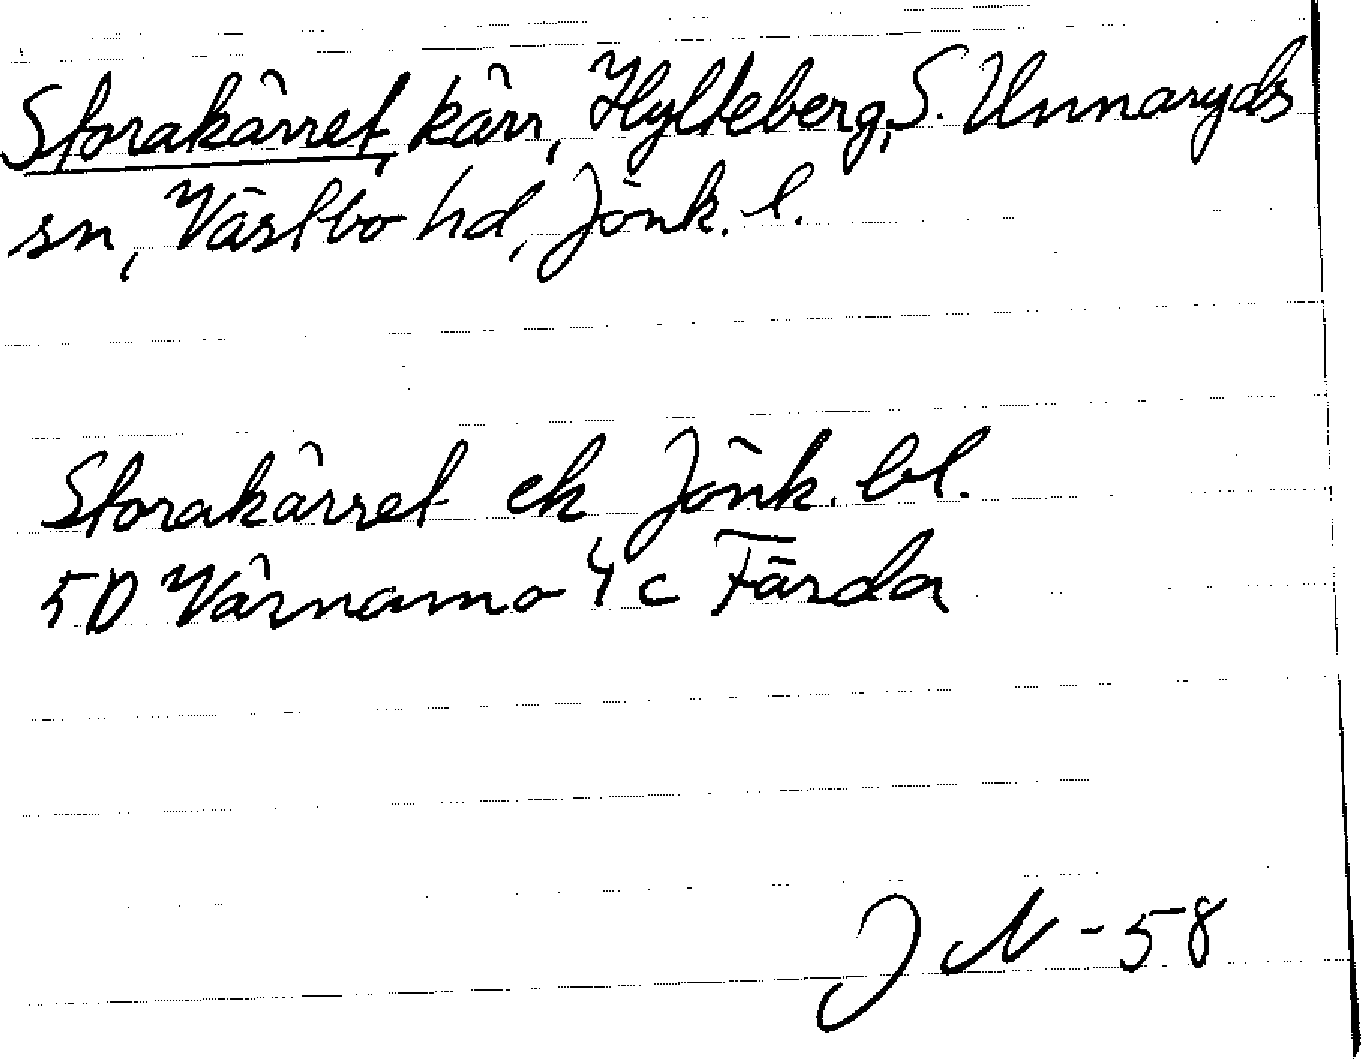 Storakärret, kärr, Hylteberg, S. Unnaryds
sn, Västbo hd, Jönk. l.
Storakärret ek Jönk. bl.
5D Värnamo 4c Färda
J N - 58